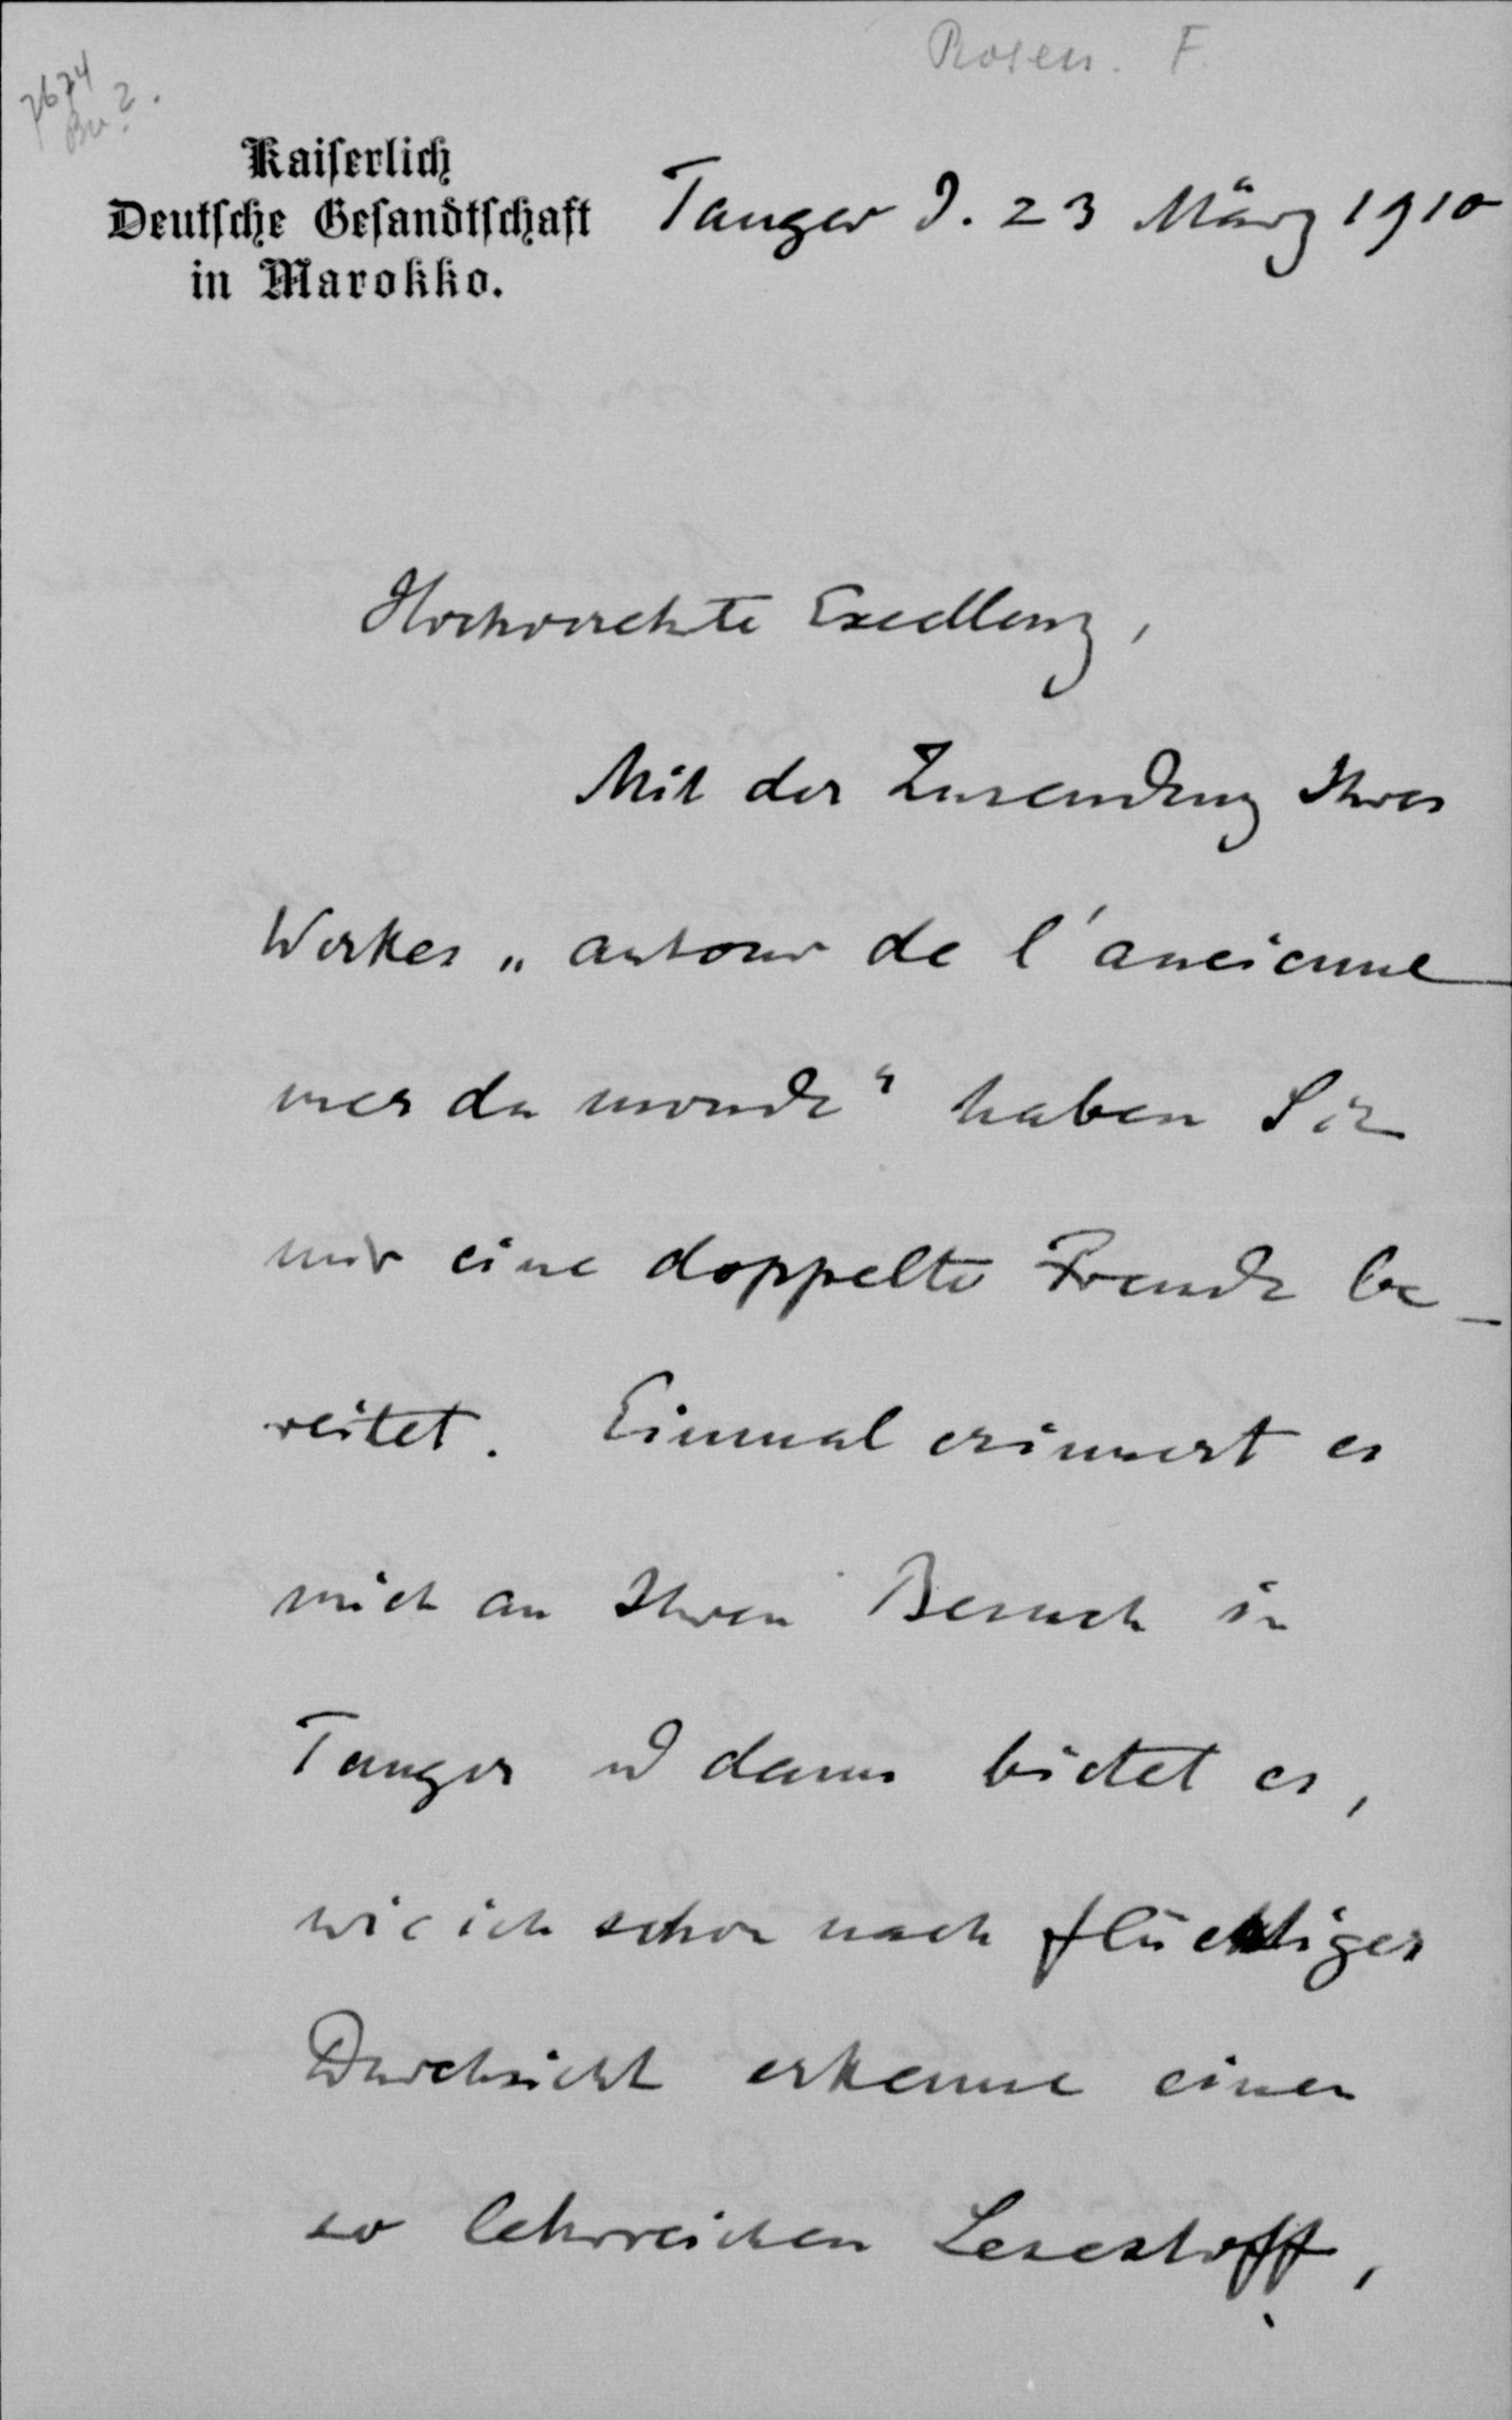 Rosen. F.
7674
Bu 2.
Kaiſerlich
Deutſche Geſandtſchaft
in Marokko.
Tanger d. 23 März 1910
Hochverehrte Excellenz,
Mit der Zusendung Ihres
Werkes „autour de l'ancienne
mer du monde“ haben Sie
mir eine doppelte Freude be-
reitet. Einmal erinnert es
mich an Ihren Besuch in
Tanger u dann bietet es,
wie ich schon nach flüchtiger
Durchsicht erkenne einen
so lehrreichen Lesestoff,